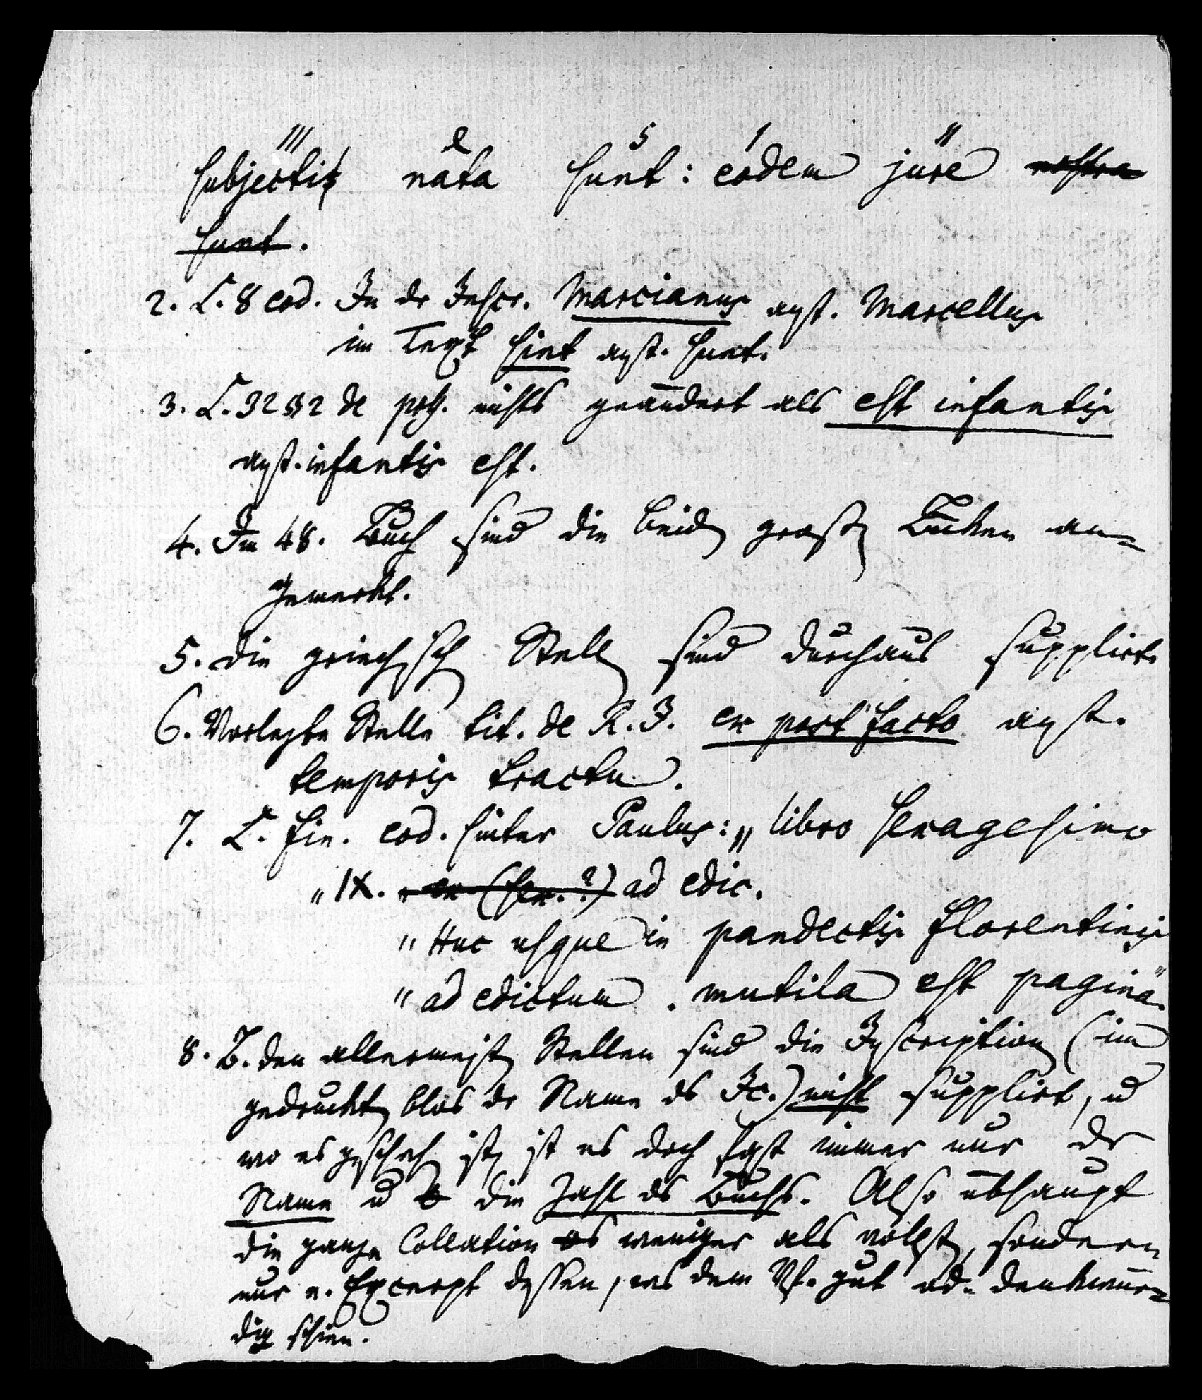 III 2 5 1 II
subjectis nata sunt: eodem jure nostra
sunt.
2. L. 8 eod. In dr Inscr. Marcianus anst. Marcellus
im Text sint anst. sunt.
3. L. 32 §2 de nichts geändert als est infantis
anst. infantis est.
4. Im 48. Buch sind die beiden großen Lücken an=
gemerkt.
5. die griechischen Stellen sind durchaus supplirt
6. Vorletzte Stelle tit. de R. J. ex post facto anst.
temporis tractu.
7. L. fin. eod. hinter Paulus: „ libro sexagesimo
„ IX. ex (sex.?) ad edic.
„ Huc usque in pandectis florentinis
„ ad edictum . mutila est pagina.
8. B. den allermeisten Stellen sind die Inscriptionen (im
gedruckten blos dr Name ds Jc.) nicht supplirt, u
wo es geschehen ist, ist es doch fast immer nur dr
Name u die Zahl ds Buchs. Also übhaupt
die ganze Collation weniger als vollst, sondern
nur e. Excerpt dessen, was dem Vf. gut od. denkwür=
dig schien.